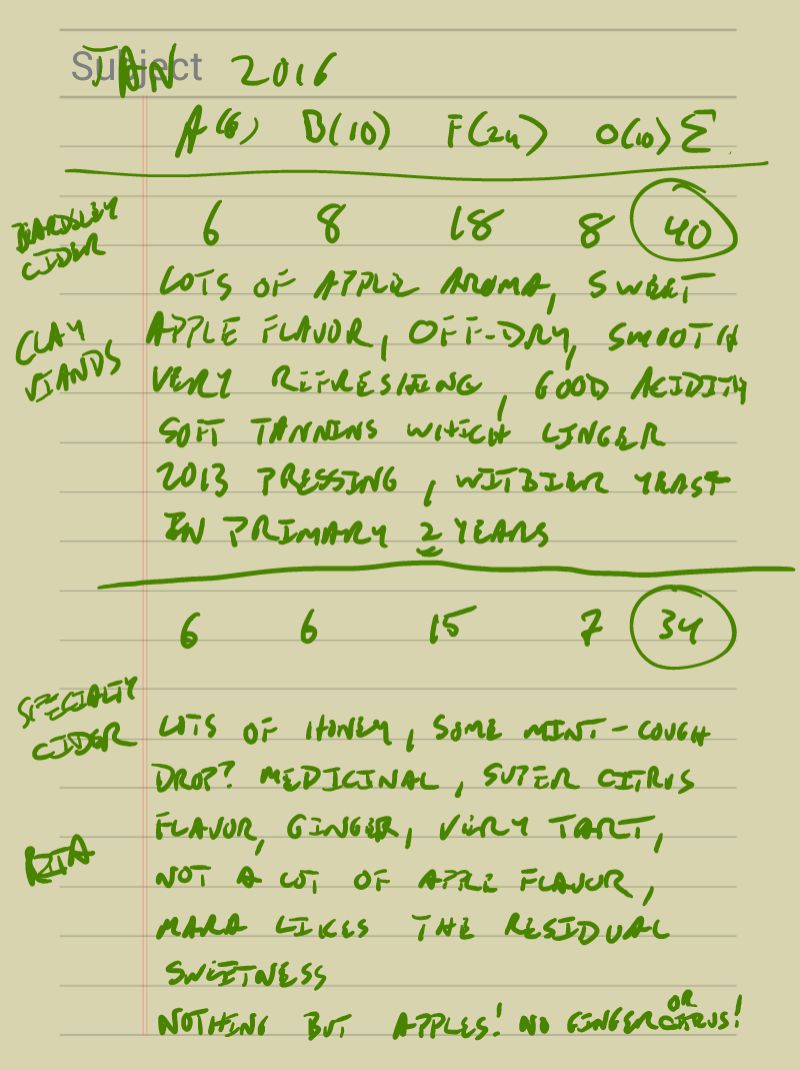 Subject
JAN 2016
A(6) B(10) F(24) O(10) Σ
BEARDSLEY CIDER
6 8 18 8 40
CLAY
LOTS OF APPLE AROMA, SWEET
APPLE FLAVOR, OFF-DRY, SMOOTH
VERY REFRESHING, GOOD ACIDITY
SOFT TANNINS WHICH LINGER
2013 PRESSING, WITBIER YEAST
IN PRIMARY 2 YEARS
6 6 15 7 34
SPECIALTY
CIDER
LOTS OF HONEY, SOME MINT-COUGH
DROP? MEDICINAL, SUPER CITRUS
FLAVOR, GINGER, VERY TART,
RITA
NOT A LOT OF APPLE FLAVOR,
MARA LIKES THE RESIDUAL
SWEETNESS
NOTHING BUT APPLES! NO GINGER OR CITRUS!